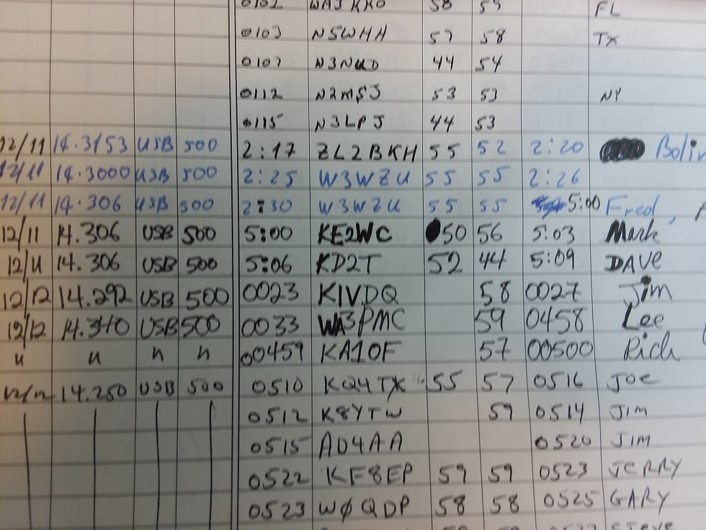 0102 WA3KKO 58 59 FL
0103 N5WHH 57 58 TX
0107 N3NUD 44 54
0112 N2MSJ 53 53 NY
0115 N3LPJ 44 53
12/11 14.3153 USB 500 2:17 ZL2BKH 55 52 2:20
12/11 14.3000 USB 500 2:25 W3WZU 55 55 2:26
12/11 14.306 USB 500 2:30 W3WZU 55 55 5:00 Fred,
12/11 14.306 USB 500 5:00 KE2WC 50 56 5:03 Mark
12/11 14.306 USB 500 5:06 KD2T 52 44 5:09 DAVE
12/12 14.292 USB 500 0023 K1VDQ 58 0027 Jim
12/12 14.340 USB 500 0033 WA3PMC 59 0458 Lee
" " " " 00459 KA1OF 57 00500 Rich
14.250 USB 500 0510 KQ4TX 55 57 0516 JOE
0512 K8YTW 59 0514 JIM
0515 AD4AA 0520 JIM
0522 KF8EP 59 59 0523 JERRY
0523 WØQDP 58 58 0525 GARY